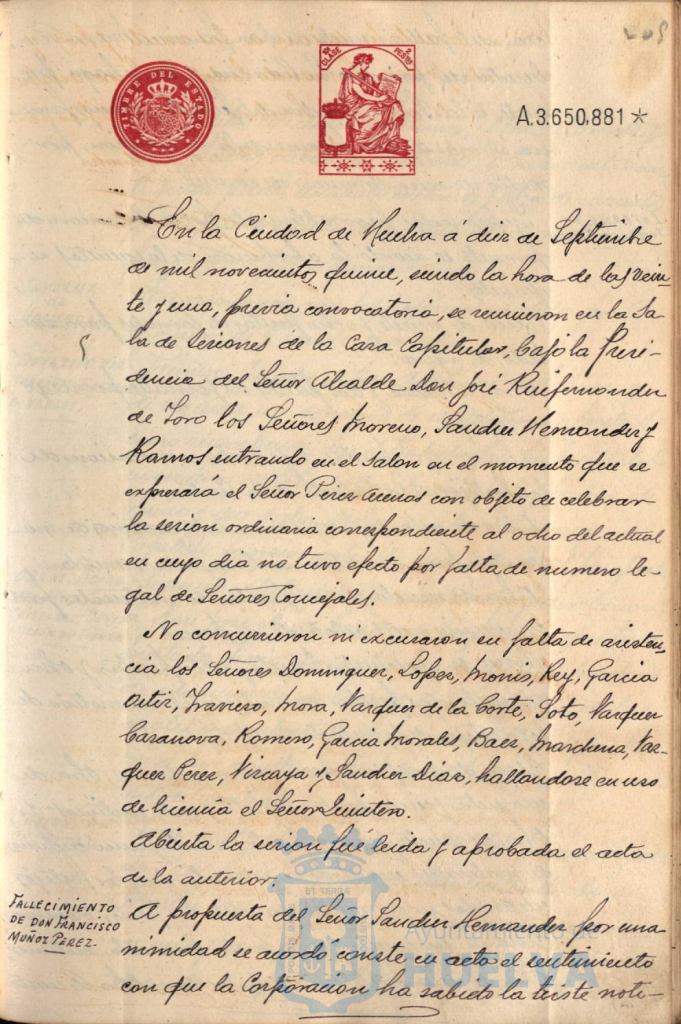 205
TIMBRE DEL ESTADO
CLASE
2 PESETAS
A.3.650,881*
En la Ciudad de Huelva á diez de Septiembre
de mil novecientos quince, siendo la hora de las vein-
te y una, previa convocatoria, se reunieron en la Sa-
la de Sesiones de la Casa Capitular, bajo la Presi-
dencia del Señor Alcalde Don José Ruifernandez
de Toro los Señores Moreno, Sanchez Hernandez y
Ramos entrando en el salon en el momento que se
expresará el Señor Perez Arenas con objeto de celebrar
la sesion ordinaria correspondiente al ocho del actual
en cuyo dia no tuvo efecto por falta de numero le-
gal de Señores Concejales.
No concurrieron ni excusaron su falta de asisten-
cia los Señores Dominguez, Lopez, Monis, Rey, Garcia
Ortiz, Travieso, Mora, Vazquez de la Corte, Soto, Vazquez
Casanova, Romero, Garcia Morales, Baez, Marchena, Vaz-
quez Perez, Vizcaya y Sanchez Diaz, hallandose en uso
de licencia el Señor Quintero.
Abierta la sesion fué leida y aprobada el acta
de la anterior.
FALLECIMIENTO
DE DON FRANCISCO
MUÑOZ PEREZ.
A propuesta del Señor Sanchez Hernandez por una-
nimidad se acordo conste en acta el sentimiento
con que la Corporacion ha sabido la triste noti-
Ayuntamiento
HUELVA